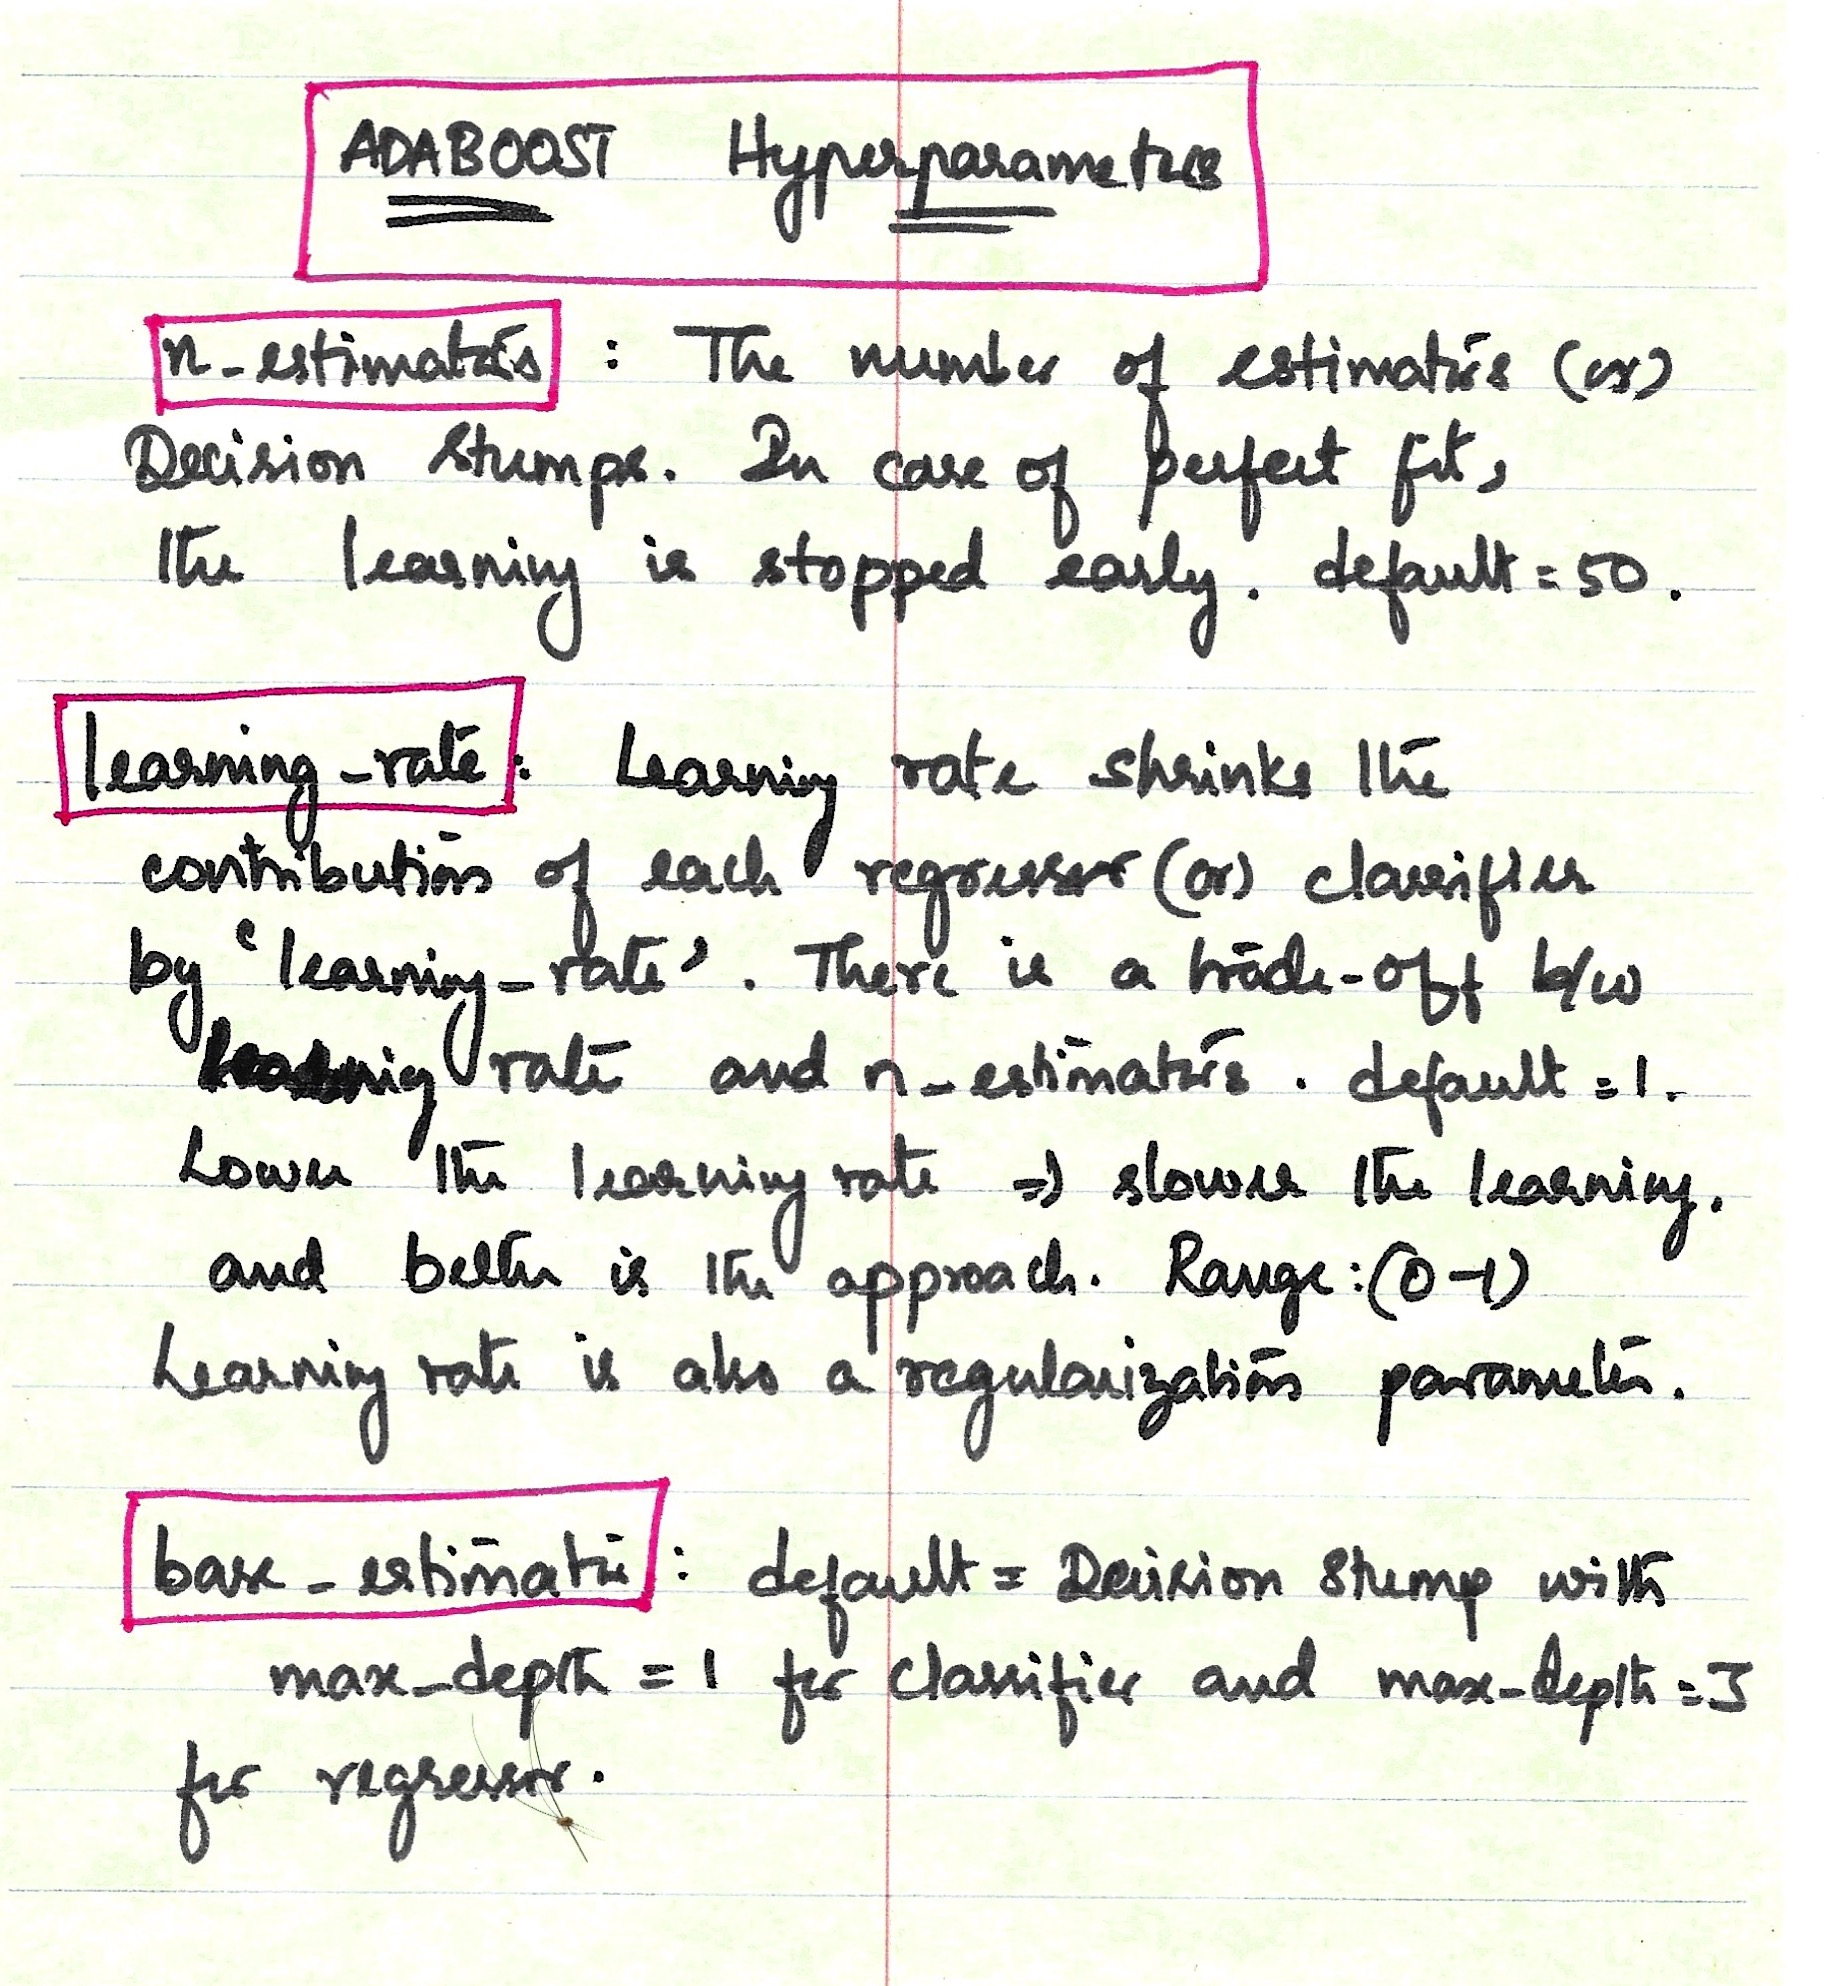 ADABOOST Hyperparameters
n-estimators : The number of estimators (or)
Decision Stumps. In case of perfect fit,
the learning is stopped early. default = 50.
learning-rate : Learning rate shrinks the
contribution of each regressor (or) classifier
by 'learning-rate'. There is a trade-off b/w
learning rate and n-estimators. default = 1.
Lower the learning rate => slower the learning.
and better is the approach. Range:(0-1)
Learning rate is also a regularization parameter.
base-estimator : default = Decision Stump with
max-depth = 1 for classifier and max-depth = 3
for regressor.